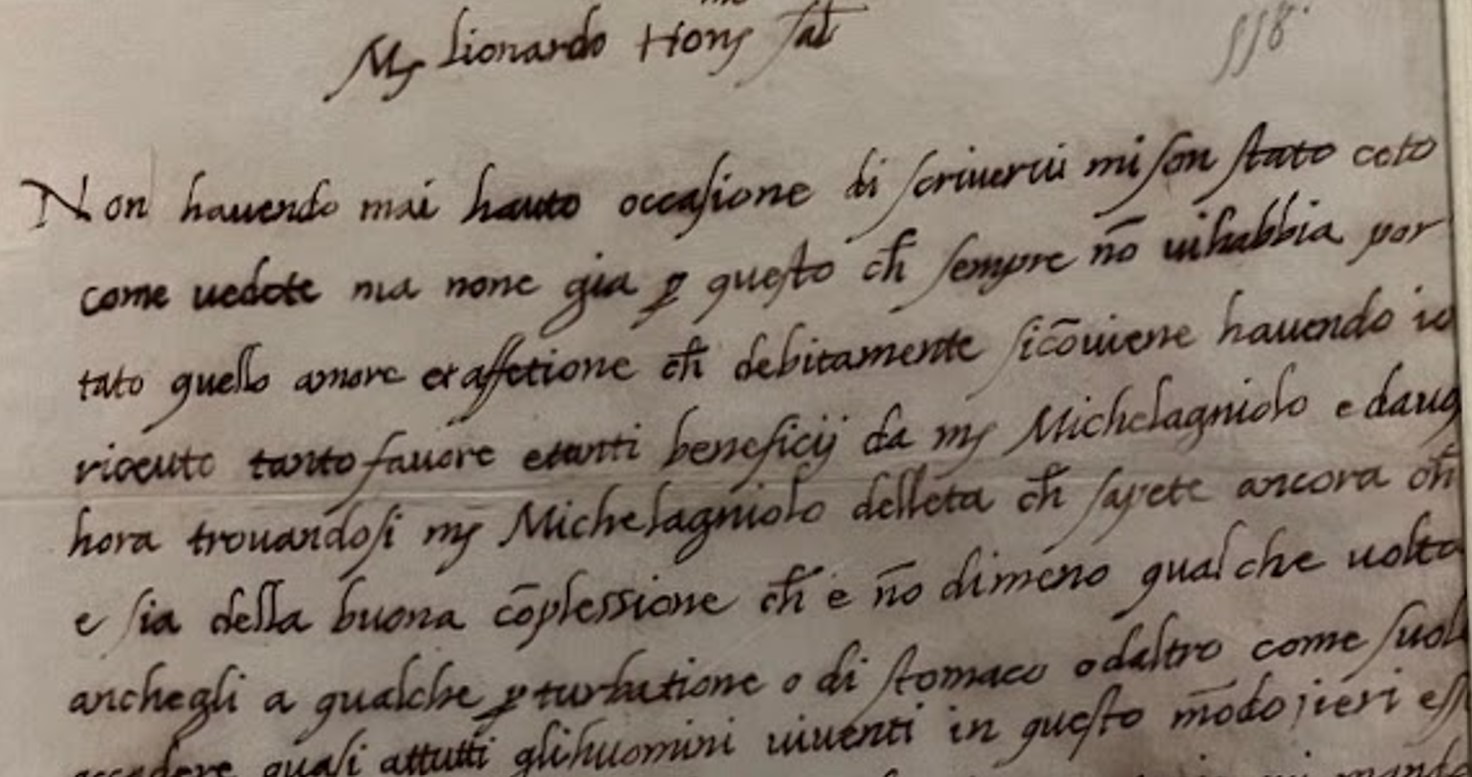 Ms Lionardo Honᵐᵒ sal 558
Non hauendo mai hauto occasione di scriuerui mi son stato ceto
come uedete ma none gia ꝑ questo ch̃ sempre nō uihabbia por
tato quello amore et affetione ch̃ debitamente sicōuiene hauendo io
riceuto tanto fauore etanti beneficij da ms Michelagniolo e dauo
hora trouandosi ms Michelagniolo delleta ch̃ sapete ancora ch̃
e sia della buona cōplessione ch̃ e nō dimeno qualche uolta
anchegli a qualche ꝑturbatione o di stomaco odaltro come suol
accadere quasi attutti glihuomini uiuenti in questo mōdo jieri ess